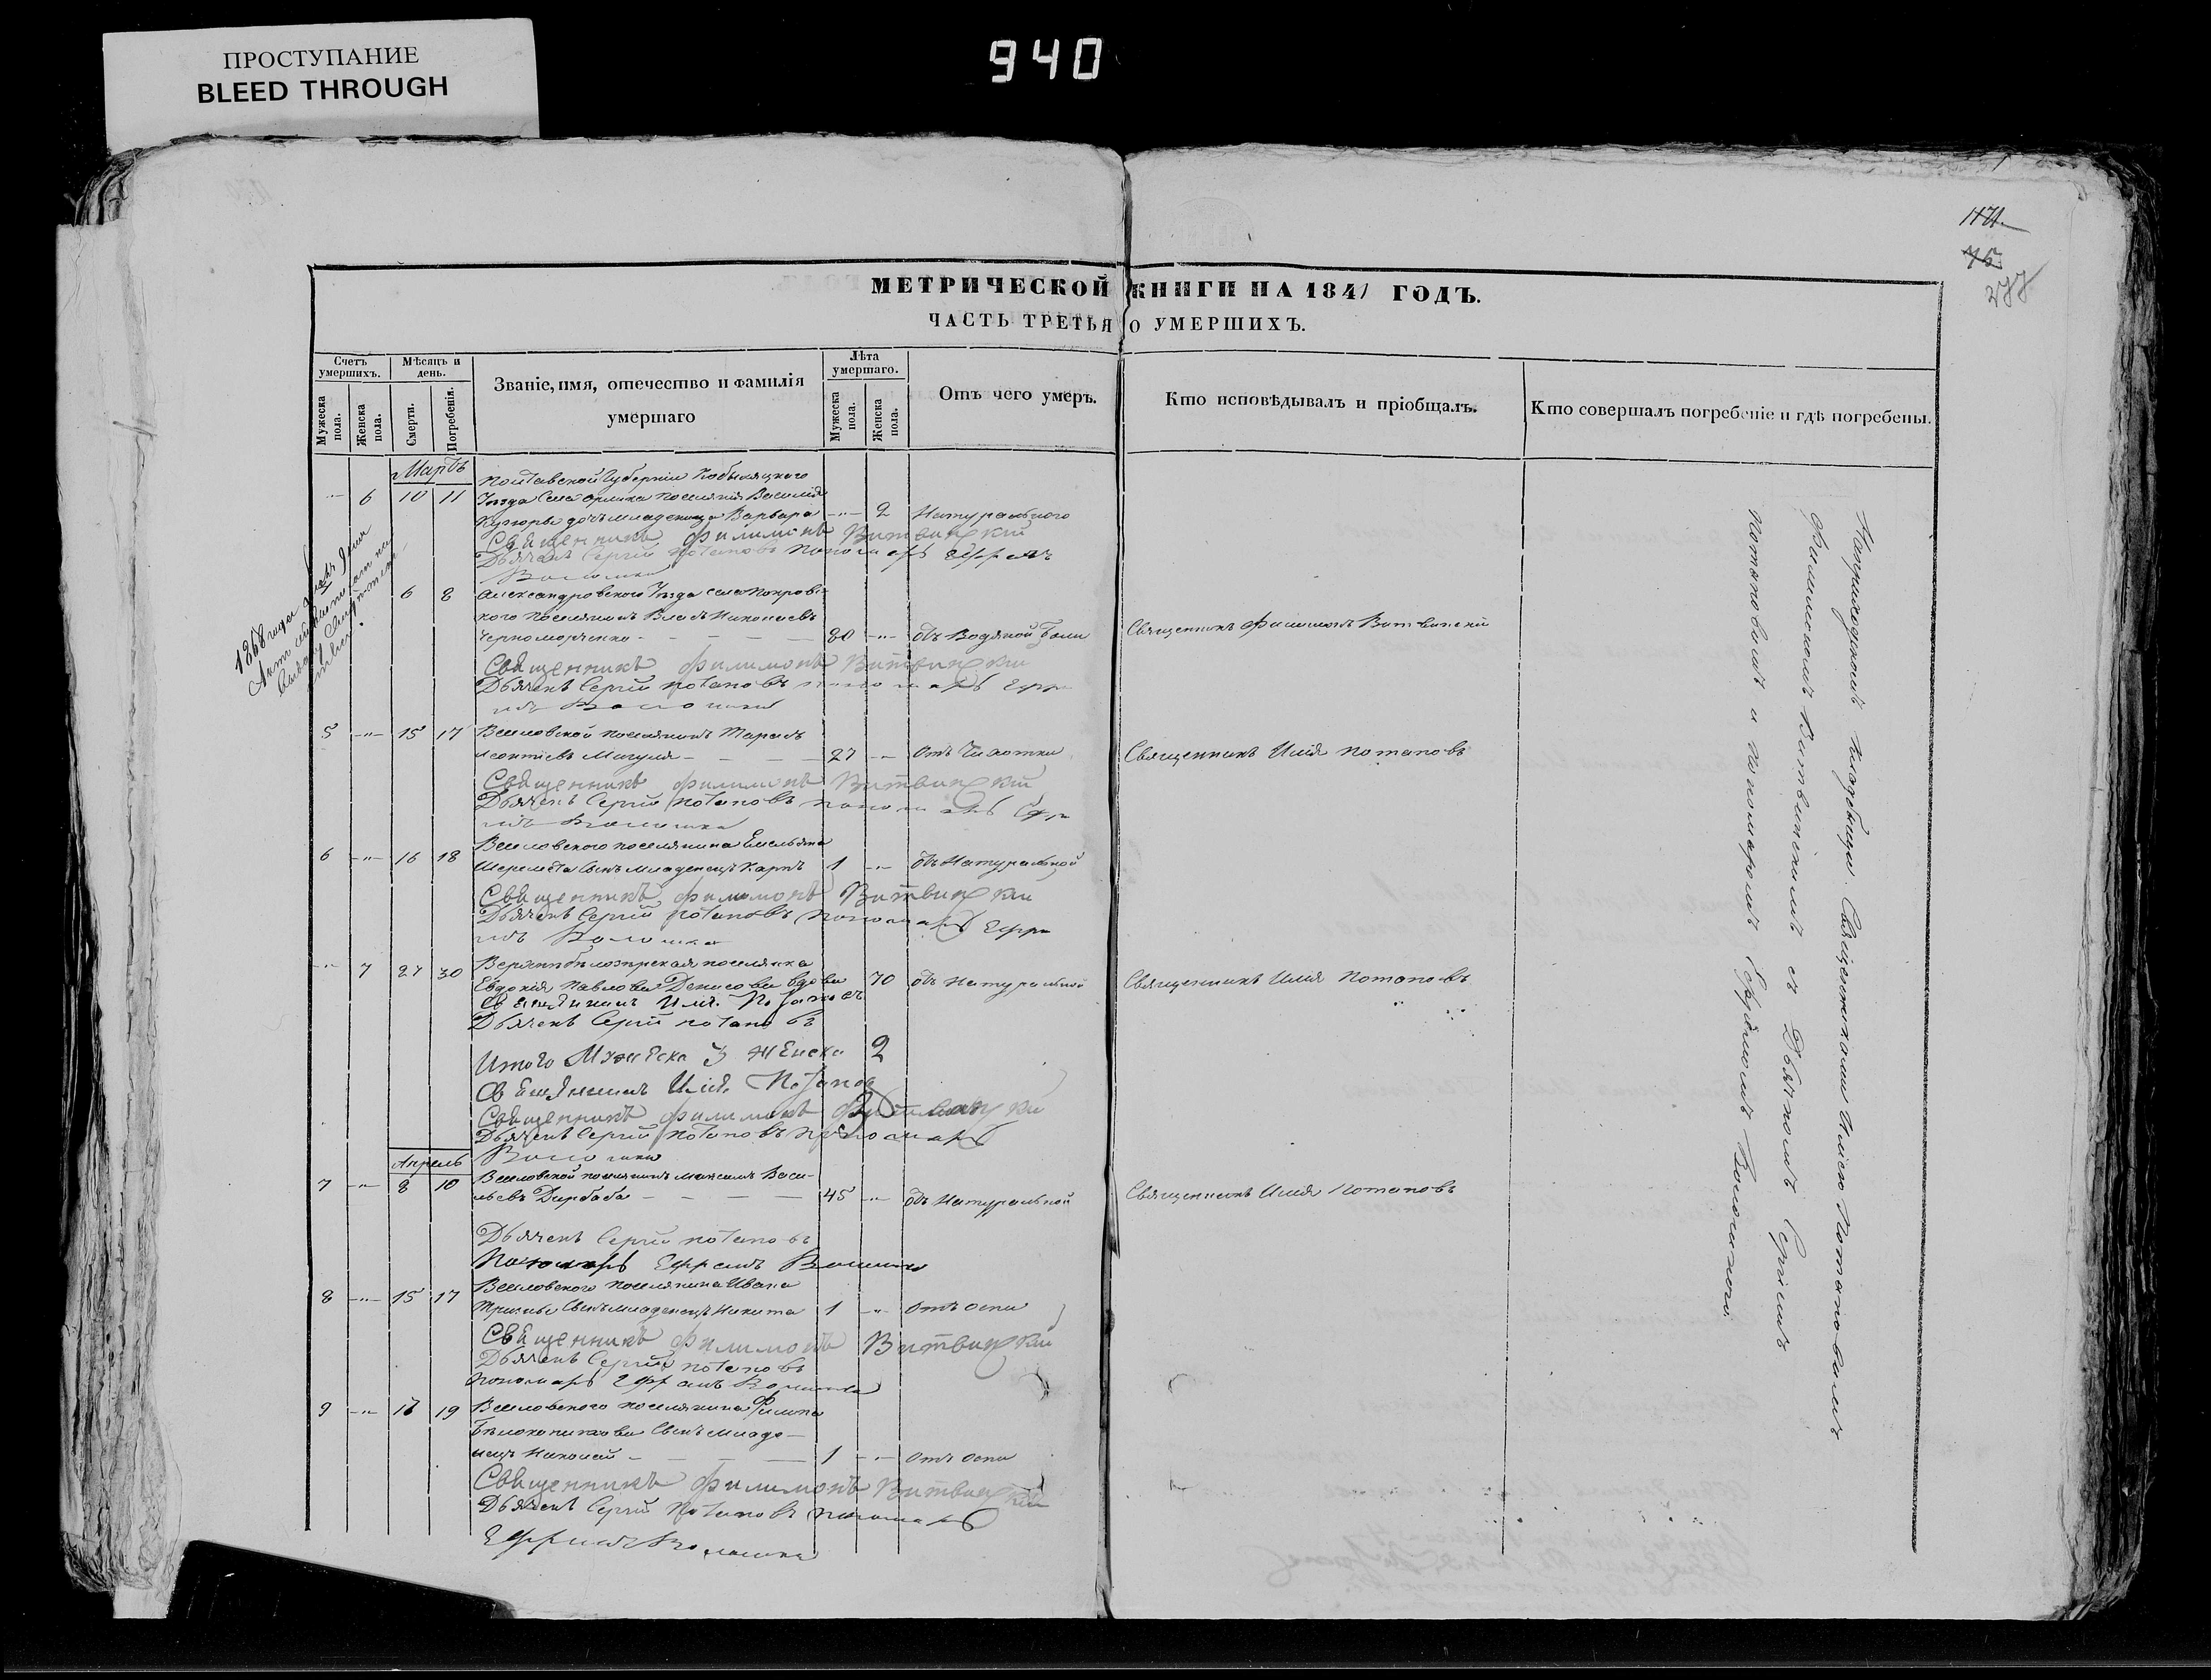 ПРОСТУПАНИЕ
BLEED THROUGH
940
1171.
75
277
МЕТРИЧЕСКОЙ КНИГИ НА 1841 ГОДЪ.
ЧАСТЬ ТРЕТЬЯ О УМЕРШИХЪ.
Счетъ умершихъ.
Мужеска пола.
Женска пола.
Мѣсяцъ и день.
Смерти.
Погребенія.
Званіе, имя, отечество и фамилія умершаго
Лѣта умершаго.
Мужеска пола.
Женска пола.
Отъ чего умеръ.
Кто исповѣдывалъ и пріобщалъ.
Кто совершалъ погребеніе и гдѣ погребены.
Мартъ
Полтавской Губерніи Кобыляцкого
6 10 11 Уѣзда Села Орлика поселянина Василія
дочь младеница Варвара 2 Натурального
Священникъ Филимонъ Витвицкій
Дьячекъ Сергій Потаповъ Пономарь Ефремъ
Волошин
6 8 Александровского Уѣзда села Покров-
кого поселянинъ Власъ Николаевъ
Черноморченко 80 отъ Водяной боли Священникъ Филимонъ Витвицкій
Священникъ Филимонъ Витвицкій
Дьячекъ Сергій Потаповъ пономарь Ефре
мъ Волошин
5 15 17 Веселовской поселянинъ Тарасъ
Леонтіевъ Мигуля 27 Отъ Чахотки Священникъ Илія Потаповъ
Священникъ Филимонъ Витвицкій
Дьячекъ Сергій Потаповъ пономарь Ефре
мъ Волошин
6 16 18 Веселовского поселянина Емельяна
Шеремета Сынъ младенецъ Карпъ 1 отъ Натуральной
Священникъ Филимонъ Витвицкій
Дьячекъ Сергій Потаповъ пономарь Ефре
мъ Волошин
7 27 30 поселянка
Евдокія Павлова Денисова вдова 70 отъ Натуральной Священникъ Илія Потаповъ
Священникъ Илія Потаповъ
Дьячекъ Сергій Потаповъ
Итого Мужеска 3 Женска 2
Священникъ Илія Потапов
Священникъ Филимонъ Витвицкій
Дьячекъ Сергій Потаповъ пономарь
Волошин
Апрель
7 8 10 Веселовской поселянинъ Максимъ Васи-
льевъ Дирбаба 45 отъ Натуральной Священникъ Илія Потаповъ
Дьячекъ Сергій Потаповъ
Пономарь Ефремъ Волошин
8 15 17 Веселовского поселянина Ивана
Сынъ младенецъ Никита 1 Отъ оспи
Священникъ Филимонъ Витвицкій
Дьячекъ Сергій Потаповъ
пономарь Ефремъ Волошин
9 19 Веселовского поселянина Филипа
Сынъ младе-
нецъ Николай 1 Отъ оспи
Священникъ Филимонъ Витвицкій
Дьячекъ Сергій Потаповъ пономарь
Ефремъ Волошин
На приходскомъ кладбищѣ. Священниками Иліею Потаповымъ
Филимономъ Витвицкимъ съ Дьячкомъ Сергіемъ
Потаповимъ и пономаремъ Ефремомъ
1868 года